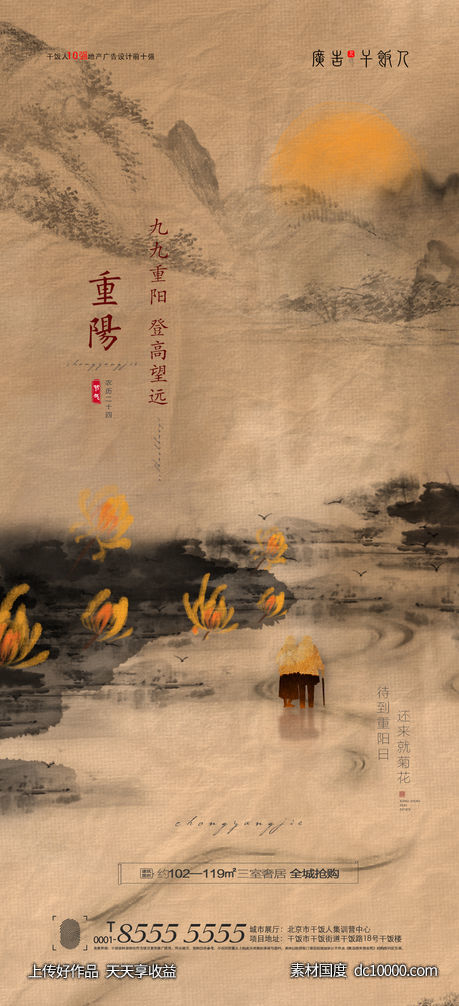 干饭人10强地产广告设计前十强
廣告 干飯人
九九重阳 登高望远
重陽
chongyangjie
节气
农历二十四
待到重阳日
还来就菊花
chongyangjie
建筑面积 约102—119㎡三室奢居 全城抢购
T 0001-8555 5555
城市展厅：北京市干饭人集训营中心
项目地址：干饭市干饭街道干饭路18号干饭楼
上传好作品 天天享收益
素材国度 dc10000.com